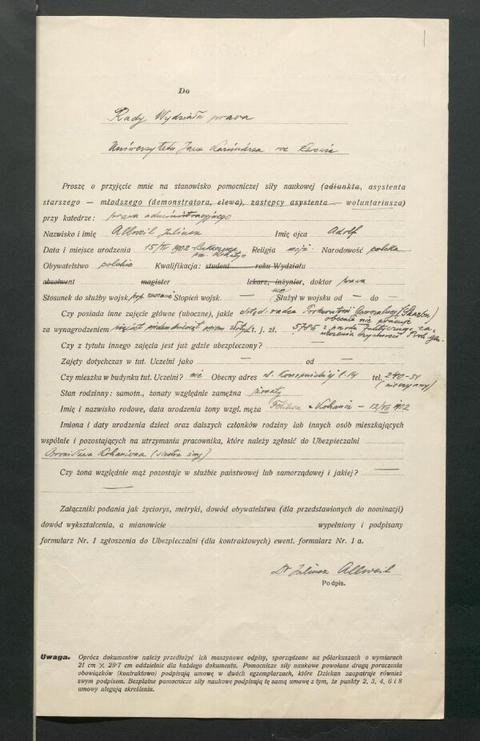 Do
Rady Wydziału prawa
Uniwersytetu Jana Kazimierza we Lwowie
Proszę o przyjęcie mnie na stanowisko pomocniczej siły naukowej (adiunkta, asystenta
starszego — młodszego (demonstratora, elewa), zastępcy asystenta — woluntariusza)
przy katedrze: prawa administracyjnego
Nazwisko i imię Allweil Juliusz Imię ojca Adolf
Data i miejsce urodzenia 15/IV 1902 Religia mojż. Narodowość polska
Obywatelstwo polskie Kwalifikacja: student roku Wydziału
absolwent magister lekarz, inżynier, doktor prawa
Stosunek do służby wojsk. Stopień wojsk. — Służył w wojsku od — do —
Czy posiada inne zajęcie główne (uboczne), jakie radca
za wynagrodzeniem j. zł.
Czy z tytułu innego zajęcia jest już gdzie ubezpieczony? —
Zajęty dotychczas w tut. Uczelni jako — od —
Czy mieszka w budynku tut. Uczelni? nie Obecny adres ul. Konopnickiej l. 14 tel. 240-51
Stan rodzinny: samotn., żonaty względnie zamężna żonaty
Imię i nazwisko rodowe, data urodzenia żony wzgl. męża Felicia 1902
Imiona i daty urodzenia dzieci oraz dalszych członków rodziny lub innych osób mieszkających
wspólnie i pozostających na utrzymaniu pracownika, które należy zgłosić do Ubezpieczalni
(siostra żony)
Czy żona względnie mąż pozostaje w służbie państwowej lub samorządowej i jakiej? —
—
Załączniki podania jak życiorys, metryki, dowód obywatelstwa (dla przedstawionych do nominacji)
dowód wykształcenia, a mianowicie wypełniony i podpisany
formularz Nr. 1 zgłoszenia do Ubezpieczalni (dla kontraktowych) ewent. formularz Nr. 1 a.
Dr Juliusz Allweil
Podpis.
Uwaga. Oprócz dokumentów należy przedłożyć ich maszynowe odpisy, sporządzone na półarkuszach o wymiarach
21 cm × 29·7 cm oddzielnie dla każdego dokumentu. Pomocnicze siły naukowe powołane drogą poruczenia
obowiązków (kontraktowo) podpisują umowę w dwóch egzemplarzach, które Dziekan zaopatruje również
swym podpisem. Bezpłatne pomocnicze siły naukowe podpisują tę samą umowę z tym, że punkty 2, 3, 4, 6 i 8
umowy ulegają skreśleniu.